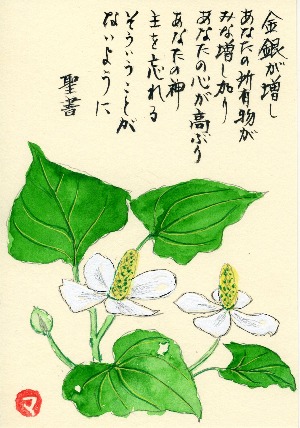 金銀が増し
あなたの所有物が
みな増し加り
あなたの心が高ぶり
あなたの神
主を忘れる
そういうことが
ないように
聖書
マ